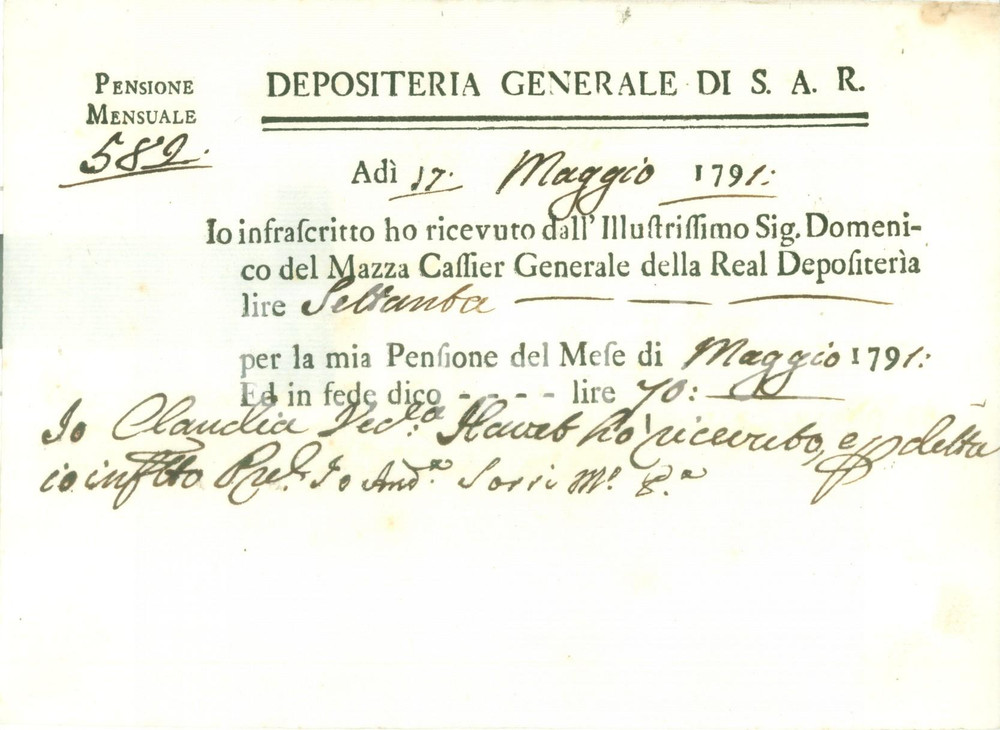 PENSIONE
MENSUALE
582.
DEPOSITERIA GENERALE DI S. A. R.
Adì 17. Maggio 1791:
Io infrascritto ho ricevuto dall' Illustrissimo Sig. Domeni-
co del Mazza Cassier Generale della Real Depositerìa
lire Settanta
per la mia Pensione del Mese di Maggio 1791:
Ed in fede dico - - - - lire 70:
Io Claudia Ved.a ho ricevuto, e p detta
io Io And.a Sorri